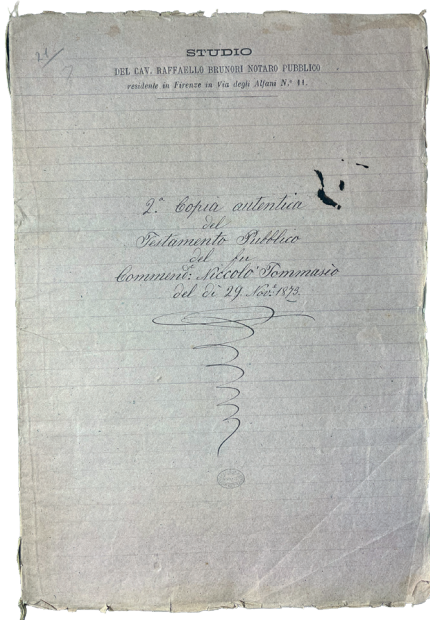 21/
7
STUDIO
DEL CAV. RAFFAELLO BRUNORI NOTARO PUBBLICO
residente in Firenze in Via degli Alfani N.º 41.
2.ª Copia autentica
del
Testamento Pubblico
del fu
Commend:e Niccolò Tommasèo
del dì 29. Nov.e 1873.